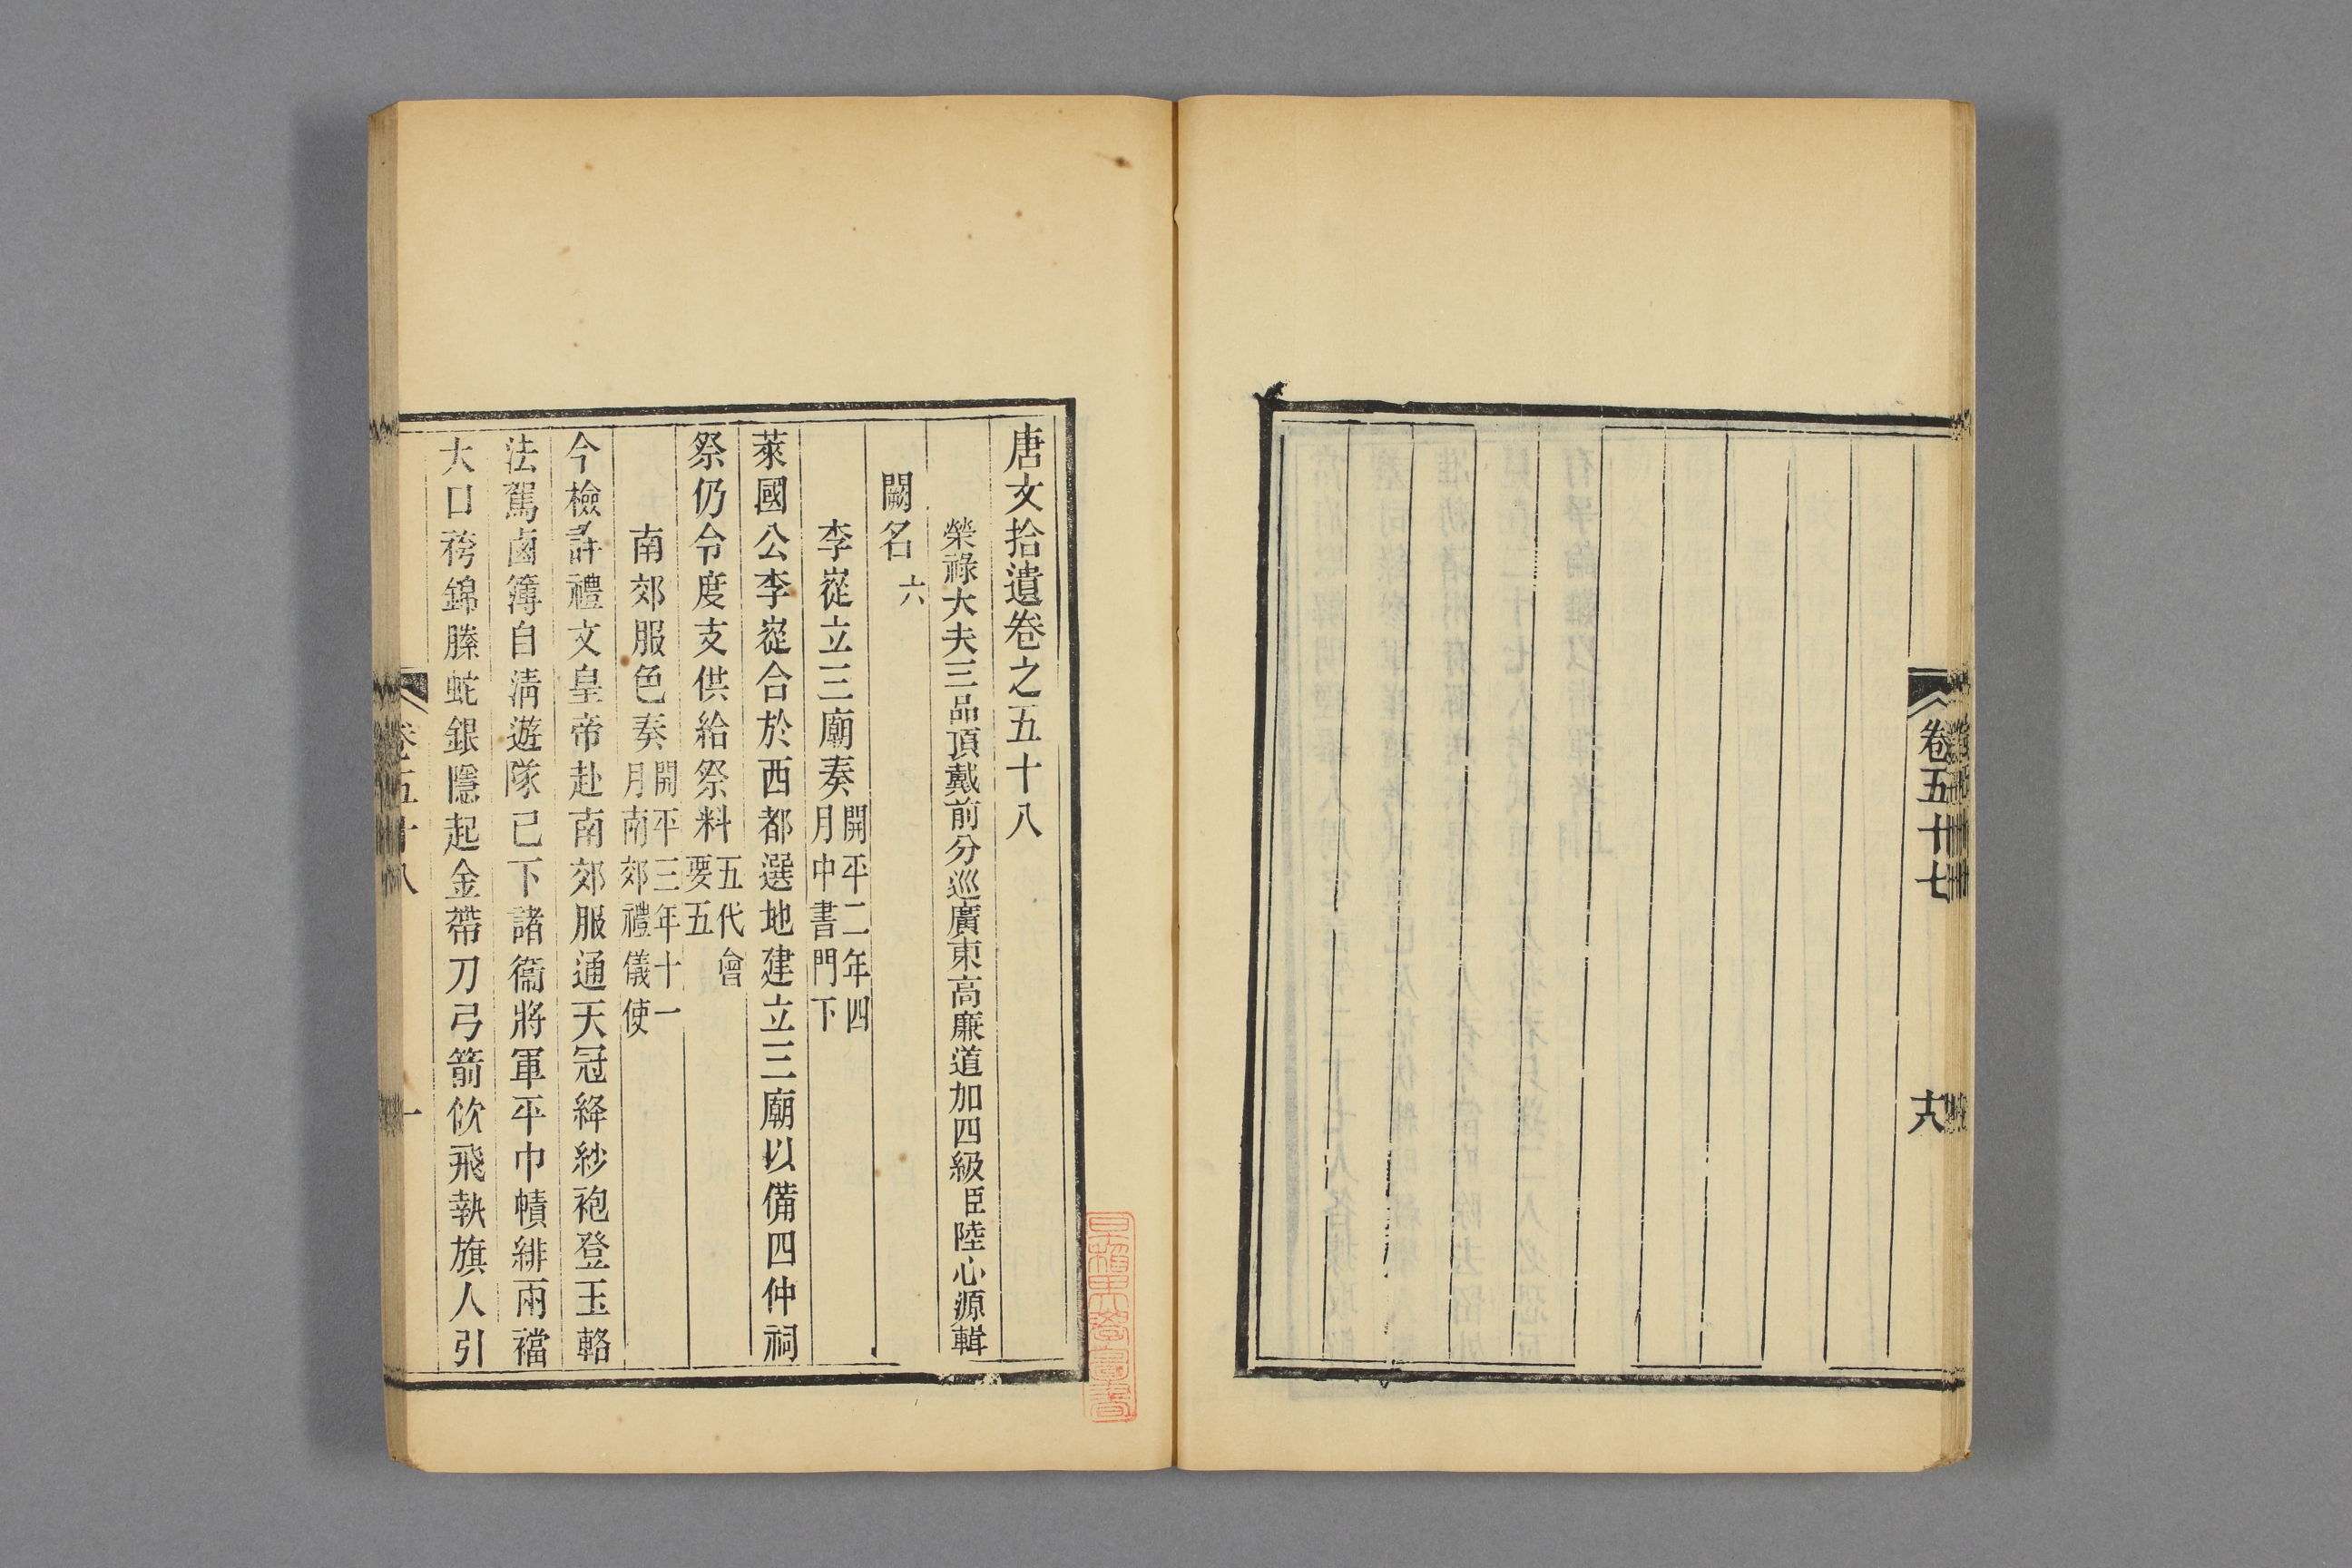 卷五十七
十八
唐文拾遺卷之五十八
榮祿大夫三品頂戴前分巡廣東高廉道加四級臣陸心源輯
闕名 六
李從立三廟奏 開平二年四
月中書門下
萊國公李從合於西都選地建立三廟以備四仲祠
祭仍令度支供給祭料 五代會
要五
南郊服色奏 開平三年十一
月南郊禮儀使
今檢詳禮文皇帝赴南郊服通天冠絳紗袍登玉輅
法駕鹵簿自清遊隊已下諸衞將軍平巾幘緋兩襠
大口袴錦螣蛇銀隱起金帶刀弓箭佽飛執旗人引
卷五十八
一
早稻田大學圖書